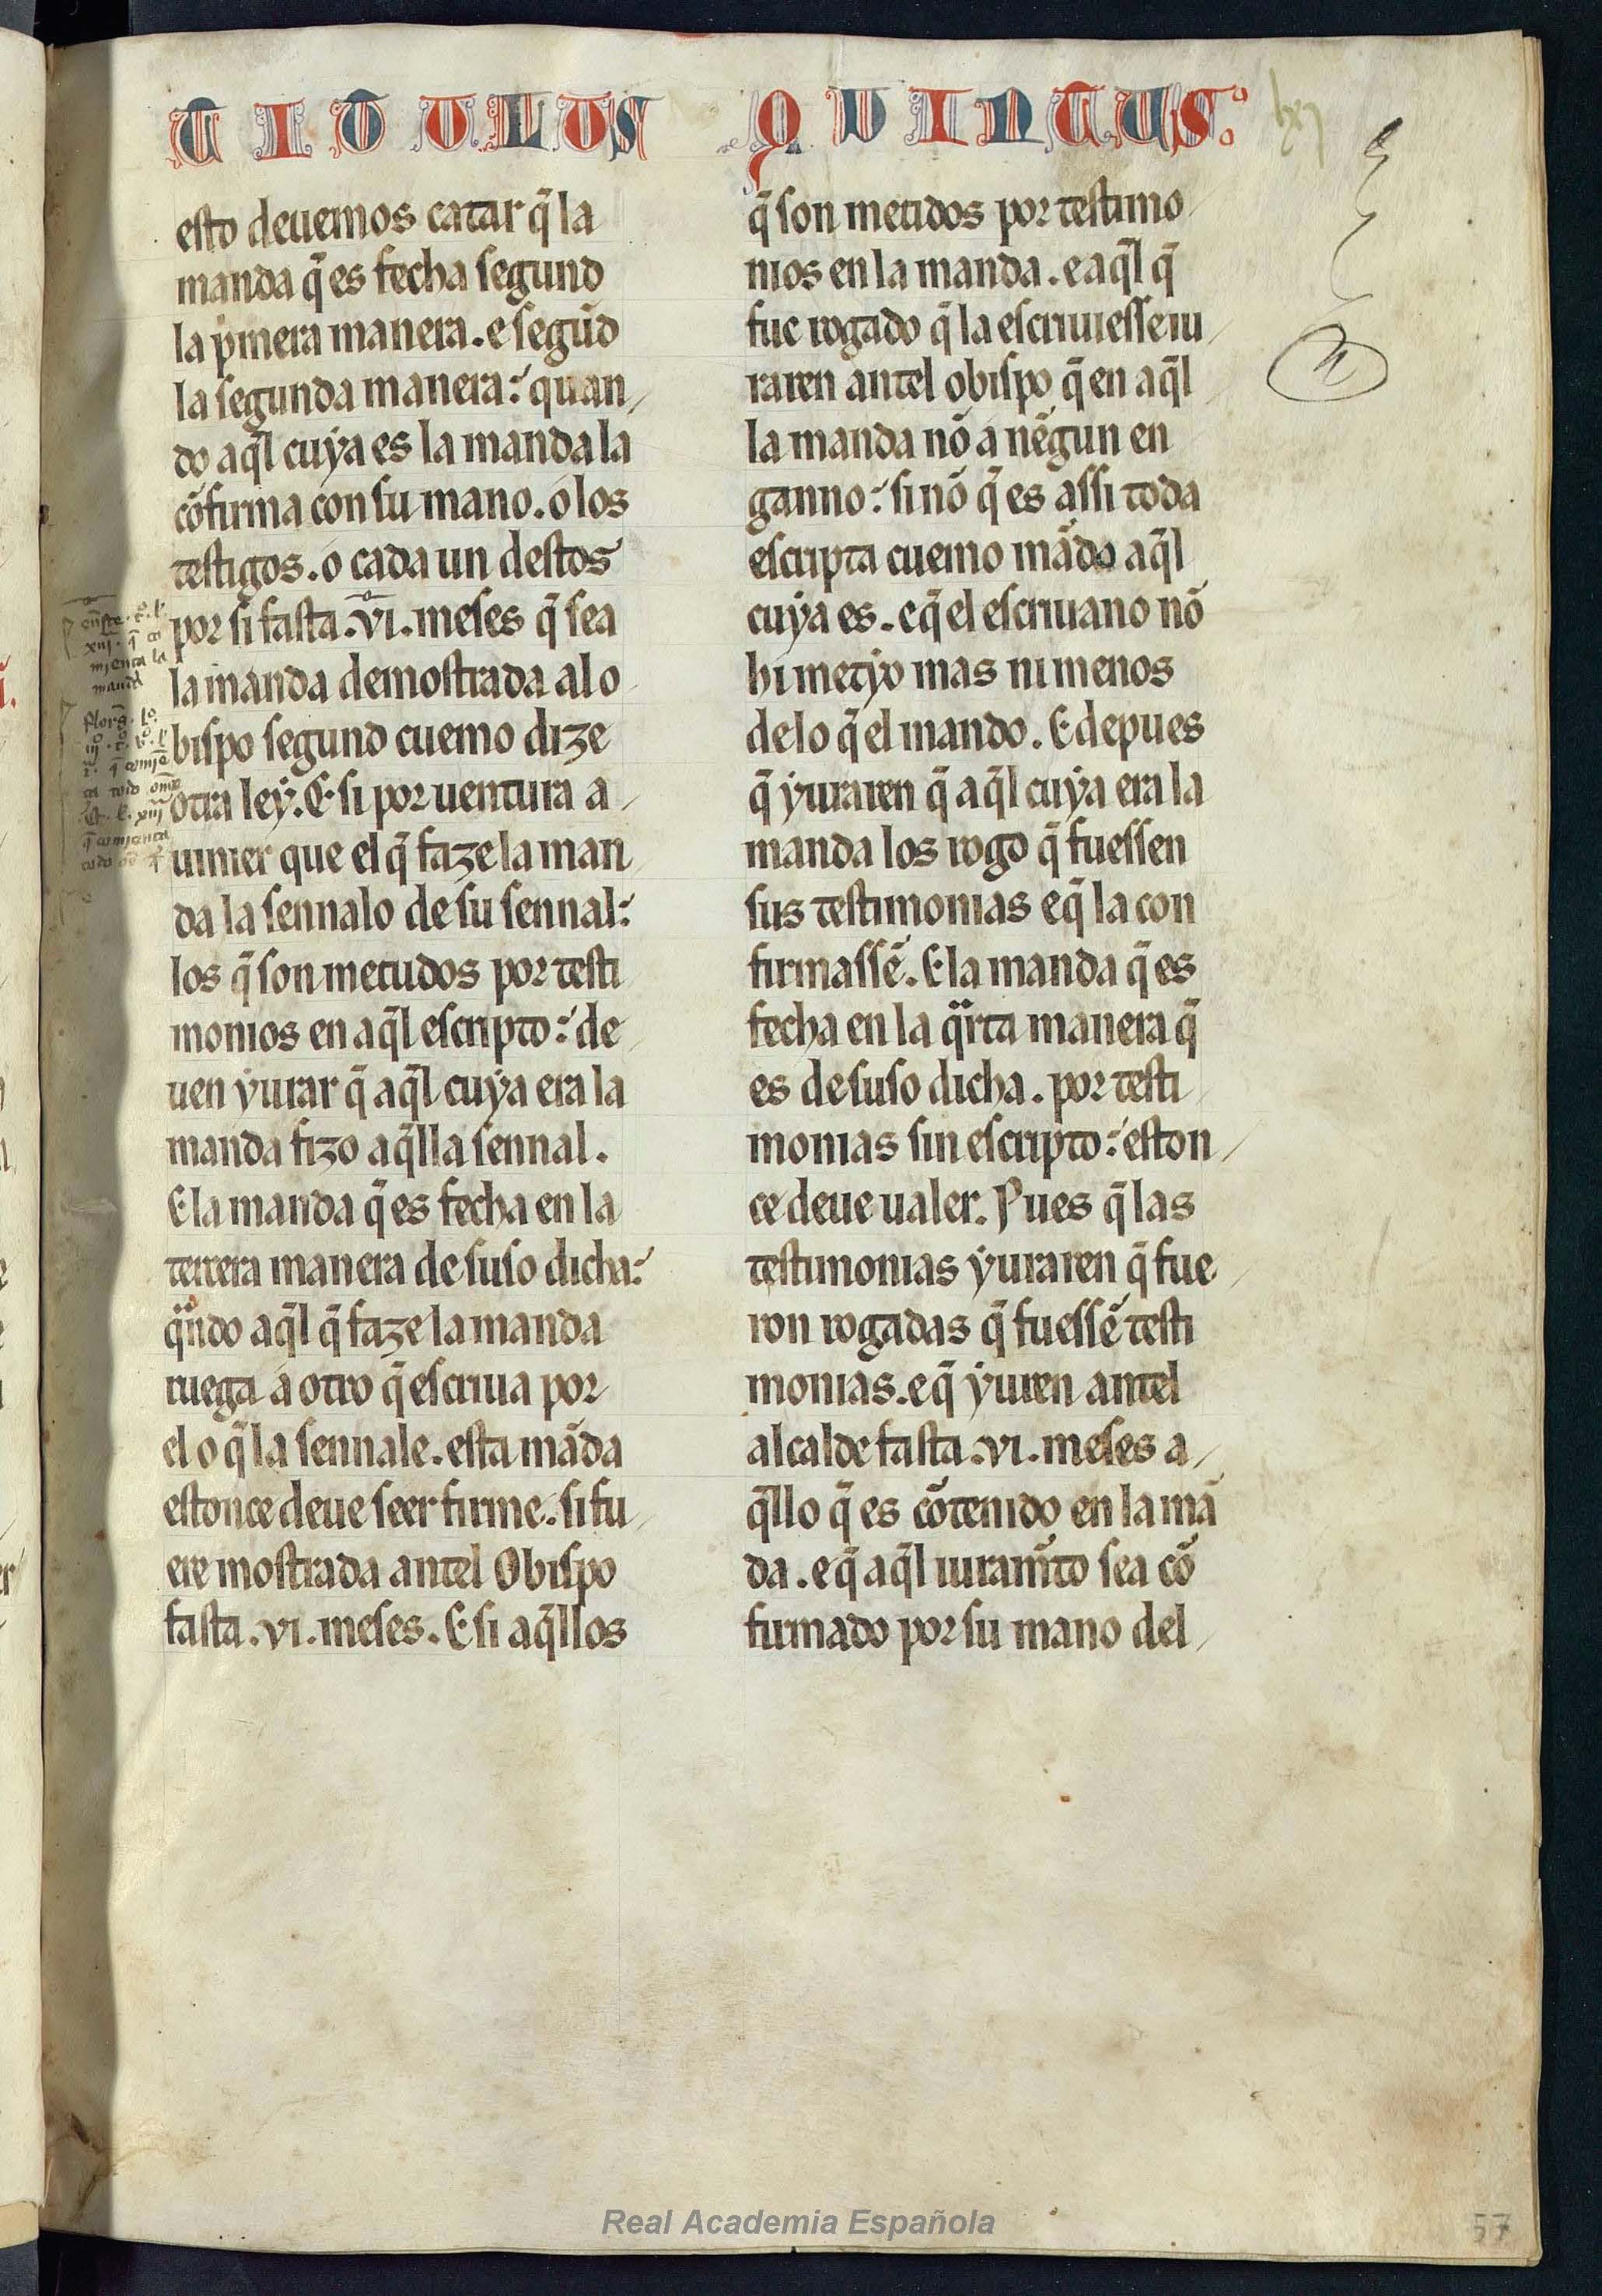 TITULUS QUINTUS
esto deuemos catar q̄ la
manda q̄ es fecha segund
la pͥmera manera. e segūd
la segunda manera: quan
do aq̄l cuya es la manda la
cōfirma con su mano. o los
testigos. o cada un destos
por si fasta .vi. meses q̄ sea
la manda demostrada al o
bispo segund cuemo dize
otra ley. E si por uentura a
uinier que el q̄ faze la man
da la sennalo de su sennal:
los q̄ son metudos por testi
monios en aq̄l escripto: de
uen yurar q̄ aq̄l cuya era la
manda fizo aq̄lla sennal.
E la manda q̄ es fecha en la
tercera manera de suso dicha:
qͣndo aq̄l q̄ faze la manda
ruega a otro q̄ escriua por
el o q̄ la sennale. esta māda
estonce deue seer firme. si fu
ere mostrada antel Obispo
fasta .vi. meses. E si aq̄llos
q̄ son metidos por testimo
nios en la manda. e aq̄l q̄
fue rogado q̄ la escriuiesse iu
raren antel obispo q̄ en aq̄l
la manda nō a nēgun en
ganno: si nō q̄ es assi toda
escripta cuemo mādo aq̄l
cuya es. e q̄ el escriuano nō
hi metyo mas ni menos
de lo q̄ el mando. E depues
q̄ yuraren q̄ aq̄l cuya era la
manda los rogo q̄ fuessen
sus testimonias e q̄ la con
firmassē. E la manda q̄ es
fecha en la qͣrta manera q̄
es de suso dicha. por testi
monias sin escripto: eston
ce deue ualer. Pues q̄ las
testimonias yuraren q̄ fue
ron rogadas q̄ fuessē testi
monias. e q̄ yuren antel
alcalde fasta .vi. meses a
q̄llo q̄ es cōtenido en la mā
da. e q̄ aq̄l iuram̄to sea cō
firmado por su mano del
Real Academia Española
57